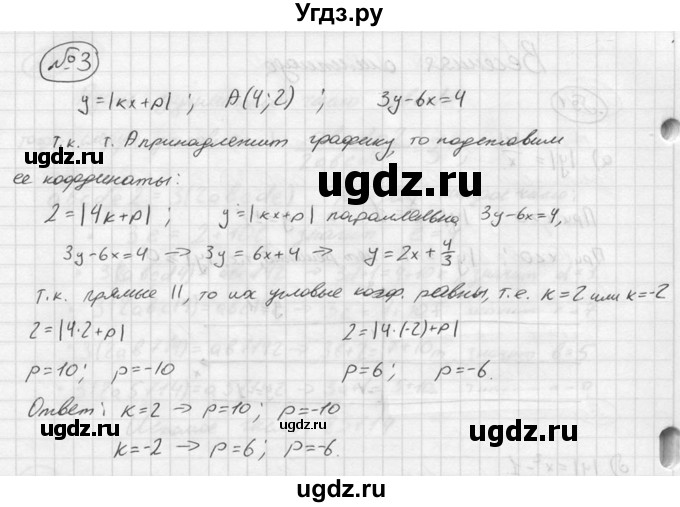 Угдз.ру
№3
y=|kx+p| ; A(4;2) ; 3y-6x=4
т.к. т. A принадлежит графику, то подставим
ее координаты:
угдз.ру
ugdz.ru
2=|4k+p| ; y=|kx+p| параллельна 3y-6x=4,
3y-6x=4 → 3y=6x+4 → y=2x+4/3
т.к. прямые II, то их угловые коэф. равны, т.е. k=2 или k=-2
2=|4·2+p| 2=|4·(-2)+p|
p=10; p=-10 p=6; p=-6.
Ответ: k=2 → p=10; p=-10
угдз.ру
ugdz.ru
k=-2 → p=6; p=-6.
угдз.ру
ugdz.ru
ugdz.ru